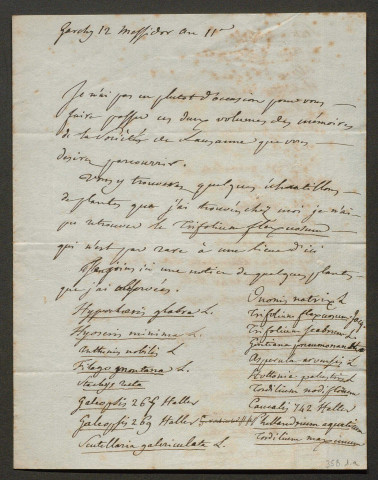 Garchy 12 Messidor an 11e
Je n'ai pas eu plustot d'occasion pour vous
faire passer ces deux volumes des mémoires
de la Société de Lausanne que vous
desirez parcourir.
Vous y trouverez quelques échantillons
de plantes que j'ai trouvés chez moi je n'ai
pu retrouver le Trifolium flexuosum
qui n'est pas rare à une lieue d'ici
ici une notice de quelques plantes
que j'ai observées.
Hypochoeris glabra L.
Hyoseris minima L.
Anthemis nobilis L.
Filago montana L.
Stachys recta
Galeopsis 267 Haller
Galeopsis 269 Haller
Scutellaria galericulata L.
Ononis natrix L
Trifolium flexuosum Jacq.
Trifolium scabrum
Gentiana pneumonanthe
Asperula arvensis L
Hottonia palustris L
Tordilium nodiflorum
Caucalis 742 Haller
Phellandrium aquaticum
Tordilium maximum